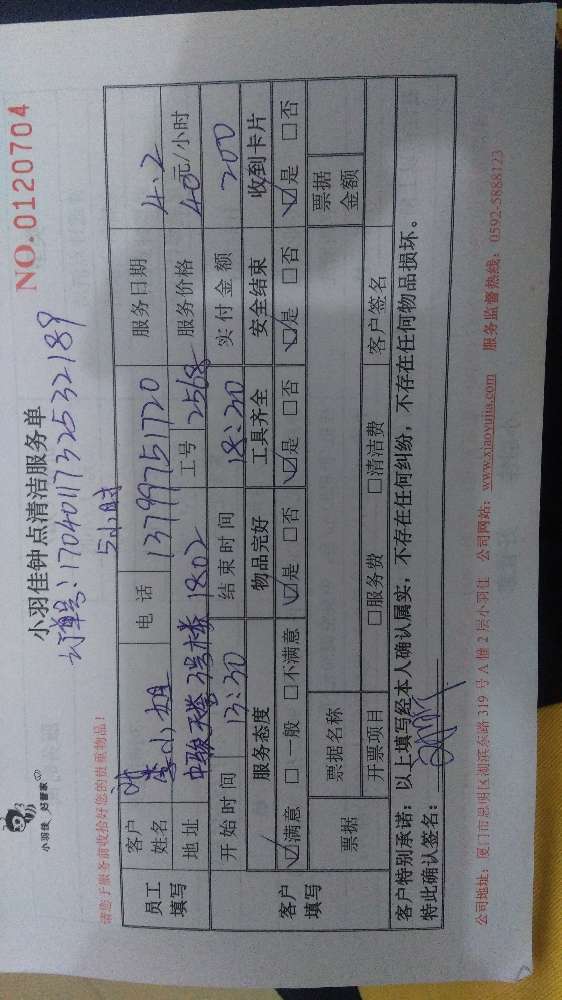 小羽佳 好管家
小羽佳钟点清洁服务单
NO.0120704
订单号:170401173253 2189
请您于服务前收拾好您的贵重物品！
5小时
员工填写 客户姓名 小姐 电话 13799751720 服务日期 4.2
地址 3号楼1802 工号 2568 服务价格 40元/小时
客户填写 开始时间 13:30 结束时间 18:30 实付金额 200
服务态度 物品完好 工具齐全 安全结束 收到卡片
☑满意 □一般 □不满意 ☑是 □否 ☑是 □否 ☑是 □否 ☑是 □否
票据 票据名称 票据金额
开票项目 □服务费 □清洁费 客户签名
客户特别承诺：以上填写经本人确认属实，不存在任何纠纷，不存在任何物品损坏。
特此确认签名：
公司地址：厦门市思明区湖滨东路319号A幢2层小羽佳 公司网站：www.xiaoyujia.com 服务监督热线：0592-5888123